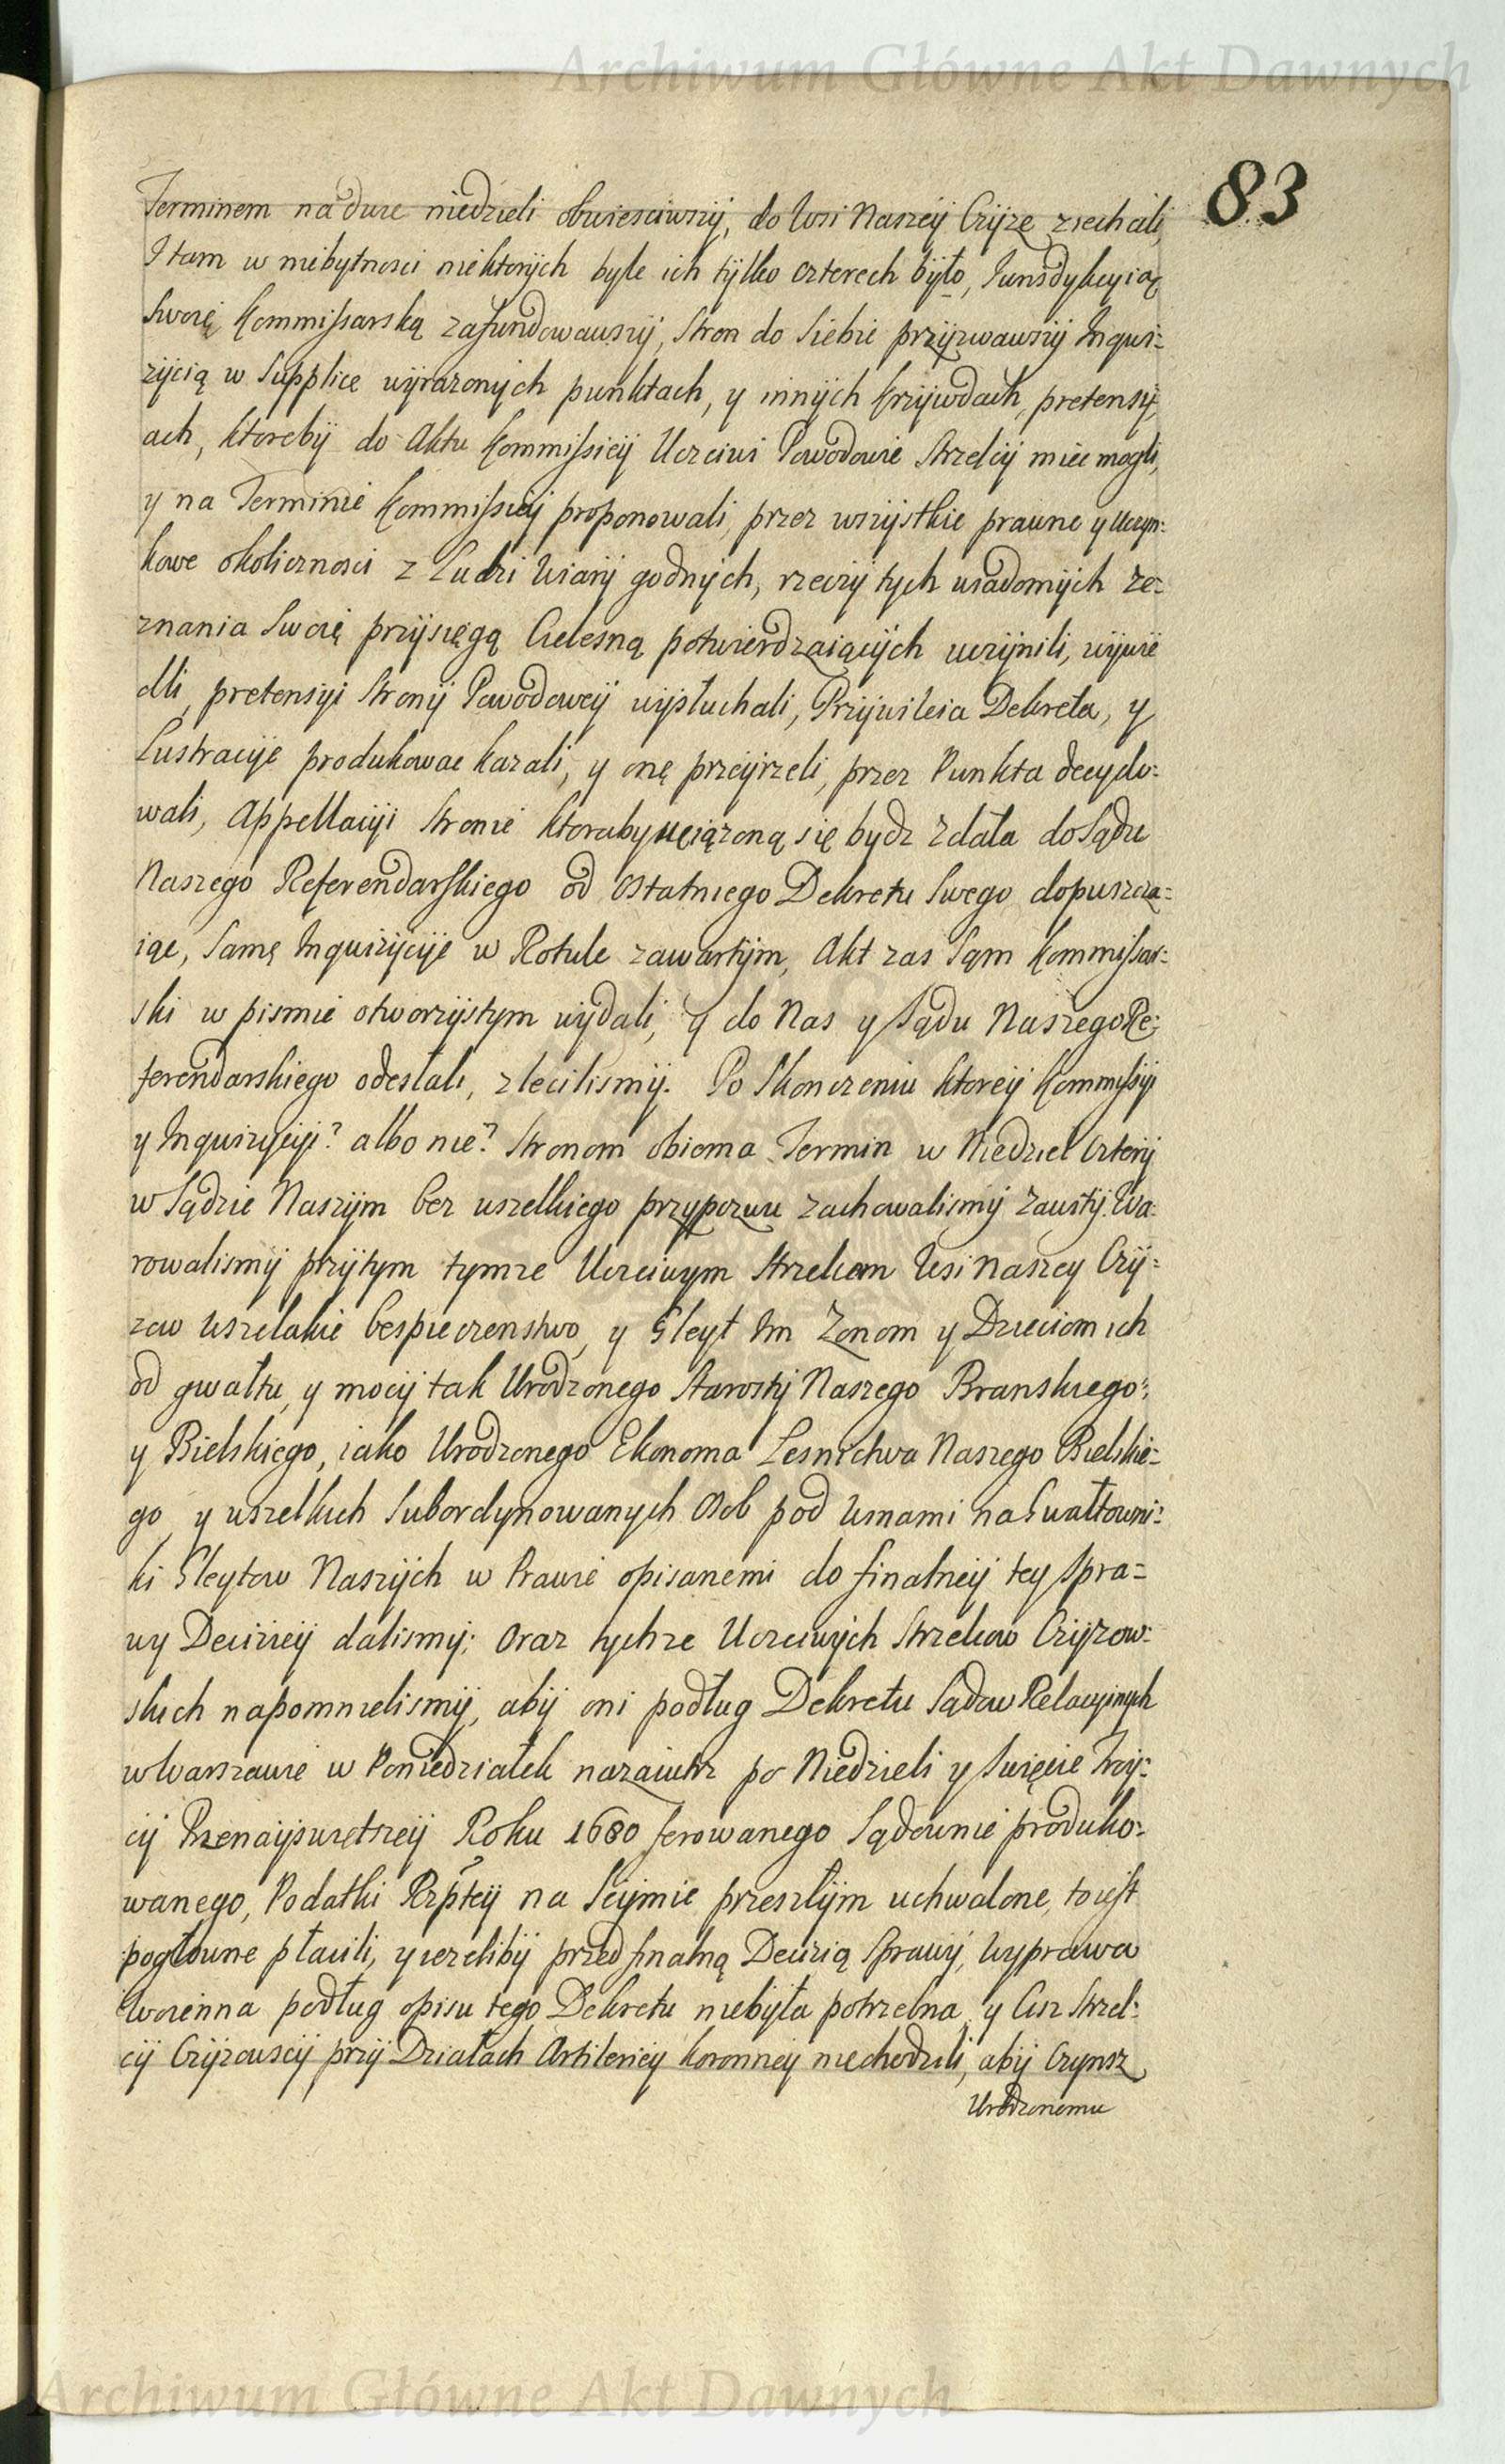 Archiwum Główne Akt Dawnych
83
Terminem na dwie niedzieli obwiesciwszÿ, do Wsi Naszeÿ Czÿze ziechali,
I tam w niebytnosci niektorÿch byle ich tÿlko czterech bÿło, Iurisdykcyią
Swoię Kommissarską zafundowawszÿ, Stron do Siebie przÿzwawszÿ Inqui=
zÿcią w Supplice wÿrazonÿch punktach, y innÿch krzÿwdach, pretensÿ
ach, ktorebÿ do Aktu Kommissieÿ Uczciwi Powodowie Strzelcÿ miec mogli,
y na Terminie Kommissieÿ proponowali, przez wszÿstkie prawne y Uczyn=
kowe okolicznosci z Ludzi Wiarÿ godnÿch, rzeczÿ tych wiadomÿch ze=
znania Swoię przÿsięgą Cielesną potwierdzaiącÿch uczÿnili, wÿwie
dli, pretensyi Stronÿ Powodoweÿ wÿsłuchali, Przÿwileia Dekreta, y
Lustracÿe produkowac kazali, y onę przeÿrzeli, przez Punkta decydo=
wali, Appellacÿi Stronie ktoraby uciązoną się bydz zdała do Sądu
Naszego Referendarskiego od Ostatniego Dekretu Swego dopuszcza=
iąc, Samę Inquizÿcÿe w Rotule zawartÿm, Akt zas Sąm Kommissar=
ski w pismie otworzÿstym wÿdali, y do Nas y Sądu Naszego Re=
ferendarskiego odesłali, zlecilismÿ. Po Skonczeniu ktoreÿ Kommissÿi
y Inquizycÿi? albo nie? Stronom obiema Termin w Niedziel Czterÿ
w Sądzie Naszÿm bez wszelkiego przypozwu zachowalismÿ Zawitÿ. Wa=
rowalismÿ przÿtym tymze Uczciwym Strzelcom Wsi Naszey Czÿ=
zow Wszelakie bespieczenstwo, y Gleyt Im Zonom y Dzieciom ich
od gwałtu, y mocÿ tak Urodzonego Starostÿ Naszego Branskiego,
y Bielskiego, iako Urodzonego Ekonoma Lesnictwa Naszego Bielskie=
go, y wszelkich Subordynowanych Osob pod Winami na Gwałtowni=
ki Gleytow Naszÿch w Prawie opisanemi do finalneÿ tey Spra=
wy Decizieÿ dalismÿ; Oraz tychze Uczciwÿch Strzelcow Czÿzow=
skich napomnielismÿ, abÿ oni podług Dekretu Sądow Relacyinych
w Warszawie w Poniedziałek nazaiutrz po Niedzieli y Swięcie Troÿ=
cÿ Przenaÿswiętszeÿ Roku 1680 ferowanego Sądownie produko=
wanego, Podatki Rzptteÿ na Seÿmie przeszłÿm uchwalone, to iest
pogłowne płacili, y iezelibÿ przed finalną Decizią Sprawÿ, Wyprawa
Woienna podług opisu tego Dekretu niebÿła potrzebna, y Ciz Strzel=
cÿ Czÿzowscÿ przÿ Działach Artileriey Koronney niechodzili, abÿ Czynsz
Urodzonemu
Archiwum Główne Akt Dawnych